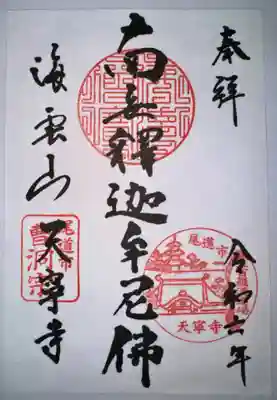 奉拝
令和六年
南无釋迦牟尼佛
海雲山
天寧寺
尾道市
天寧寺
尾道市
曹洞宗